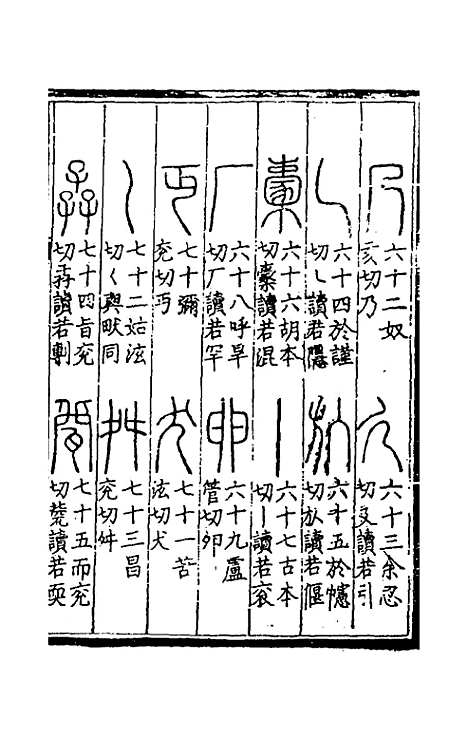 乃
六十二奴
亥切乃
廴
六十三余忍
切廴讀若引
乚
六十四於謹
切乚讀若隱
㫃
六十五於幰
切㫃讀若偃
㯻
六十六胡本
切㯻讀若混
丨
六十七古本
切丨讀若衮
厂
六十八呼旱
切厂讀若罕
卵
六十九盧
管切卵
丏
七十彌
兖切丏
犬
七十一苦
泫切犬
𡿨
七十二姑泫
切𡿨與畎同
舛
七十三昌
兖切舛
孨
七十四旨兖
切孨讀若剸
㼱
七十五而兖
切㼱讀若耎